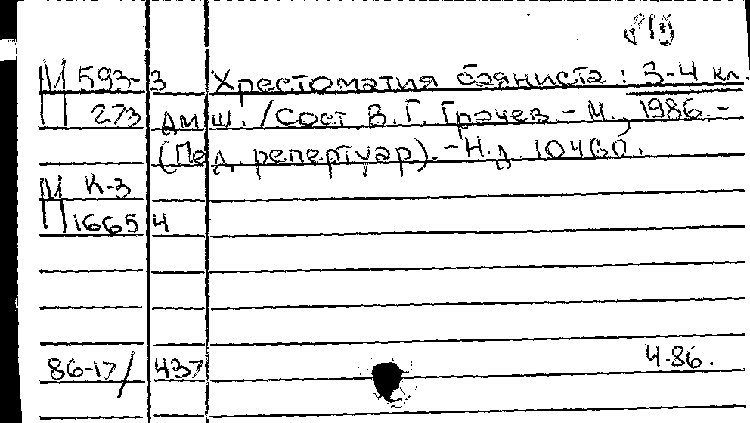 М 593-3 Хрестоматия баяниста: 3-4 кл.
П 273 ДМШ. / Сост. В. Г. Грачев - М., 1986. -
(Пед. репертуар). - Н.д. 10460.
М К-3
П 16654
86-17/437 4-86.